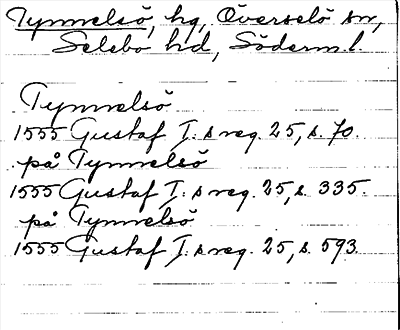 Tynnelsö, hg, Överselö sn,
Selebo hd, Söderm. l.
Tynnelsö
1555 Gustaf I:s reg. 25, s. 70.
på Tynnelsö
1555 Gustaf I:s reg. 25, s. 335.
på Tynnelsö
1555 Gustaf I:s reg. 25, s. 593.